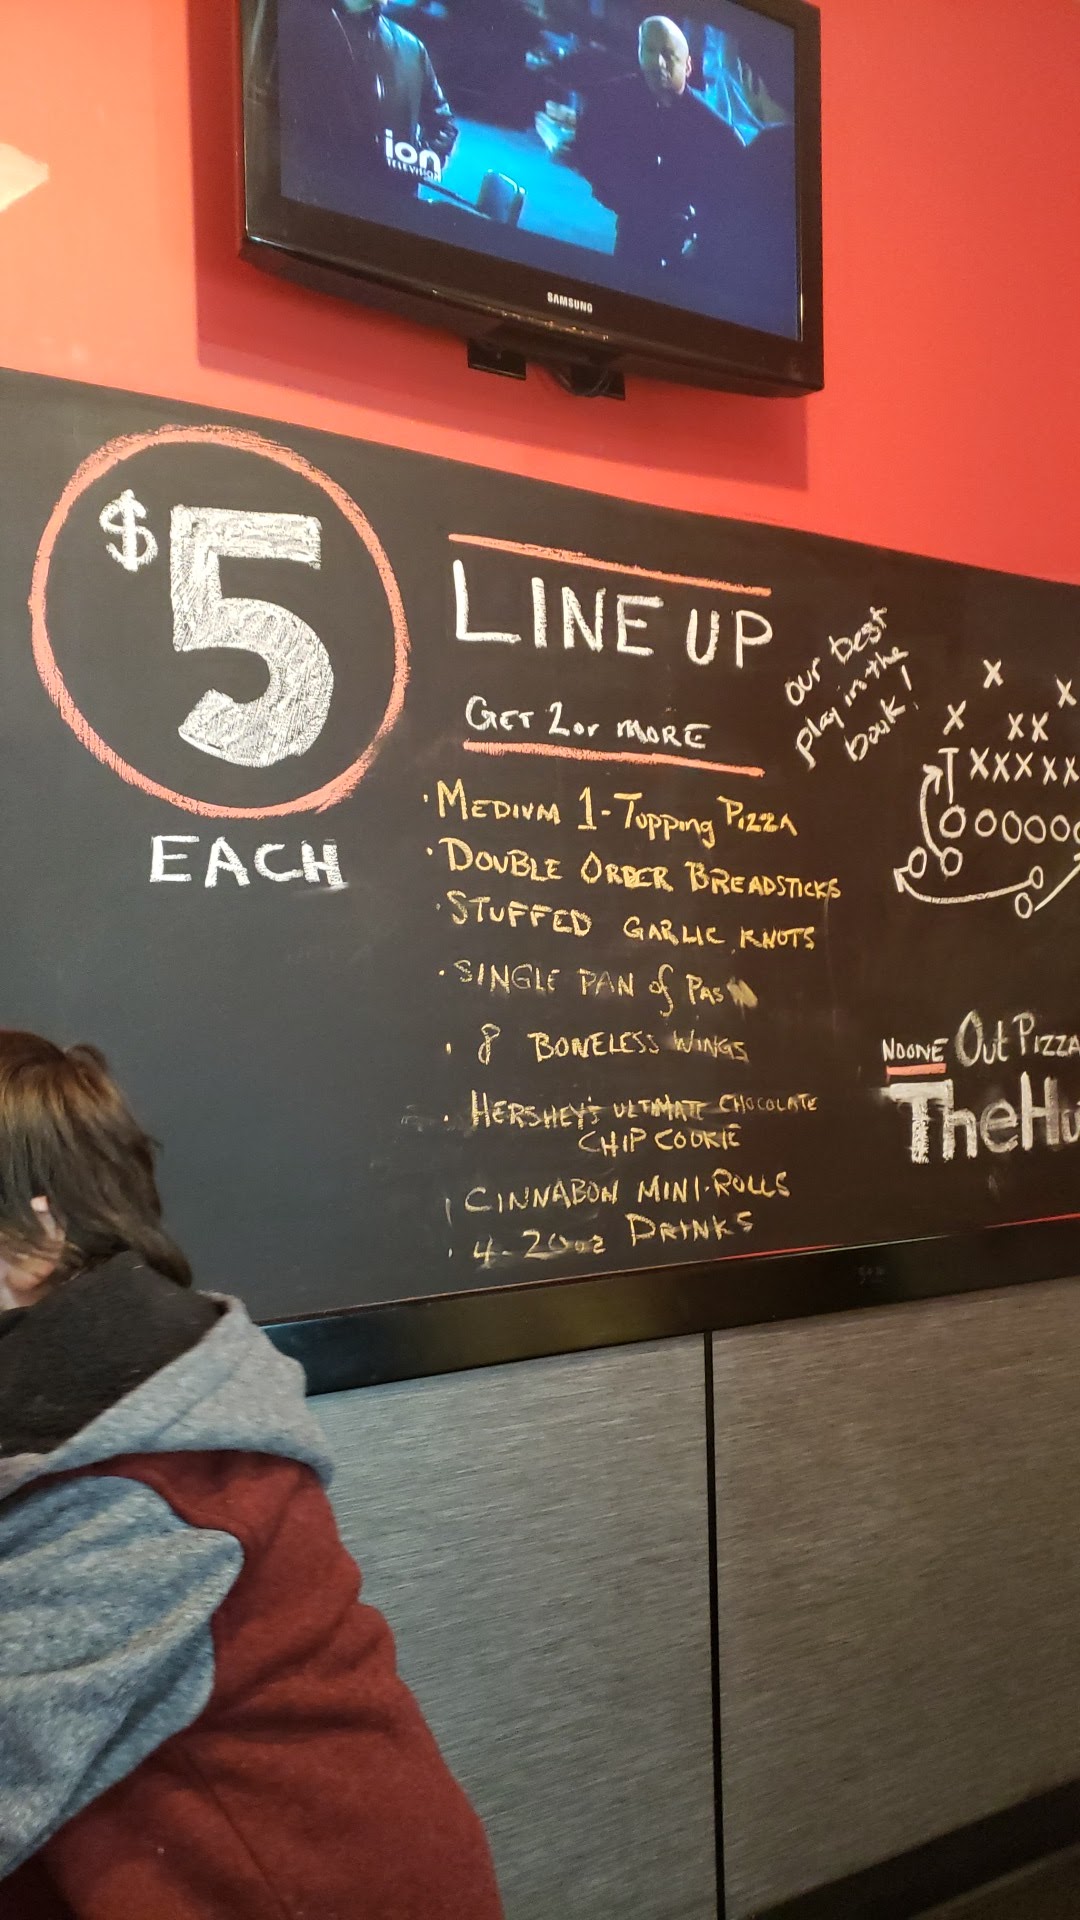 ion
TELEVISION
SAMSUNG
$5
EACH
LINE UP
GET 2 or MORE
our best
play in the
book!
• MEDIUM 1-Topping PIZZA
• DOUBLE ORDER BREADSTICKS
• STUFFED GARLIC KNOTS
• SINGLE PAN of PAS
• 8 BONELESS WINGS
• HERSHEY'S ULTIMATE CHOCOLATE
CHIP COOKIE
CINNABON MINI-ROLLS
• 4-20oz DRINKS
X X
X XX
TXXXXX
OOOOOO
OO O
O
NOONE Out PIZZA
TheHu